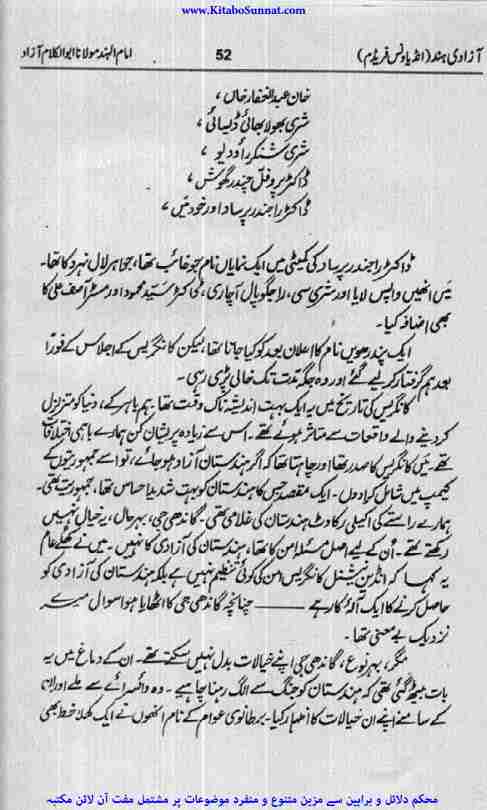 www.KitaboSunnat.com
آزادی ہند (انڈیا ونس فریڈم) 52 امام الہند مولانا ابوالکلام آزاد
خان عبدالغفار خاں ،
شری بھولا بھائی ڈیسائی ،
شری شنکر راؤ دیو ،
ڈاکٹر پروفل چندر گھوش ،
ڈاکٹر راجندر پرساد اور خود میں ،
ڈاکٹر راجندر پرساد کی کمیٹی میں ایک نمایاں نام جو غائب تھا، جواہر لال نہرو کا تھا۔
میں انھیں واپس لایا اور شری سی، راجگوپال آچاری، ڈاکٹر سید محمود اور مسٹر آصف علی کا
بھی اضافہ کیا۔
ایک پندرھویں نام کا اعلان بعد کو کیا جانا تھا، لیکن کانگریس کے اجلاس کے فوراً
بعد ہم گرفتار کر لیے گئے اور وہ جگہ مدت تک خالی پڑی رہی۔
کانگریس کی تاریخ میں یہ ایک بہت اندیشہ ناک وقت تھا، ہم باہر کے، دنیا کو متزلزل
کر دینے والے واقعات سے متاثر ہوئے تھے۔ اس سے زیادہ پریشان کن ہمارے باہمی اختلافات
تھے۔ میں کانگریس کا صدر تھا اور چاہتا تھا کہ اگر ہندستان آزاد ہو جائے، تو اسے جمہوریتوں کے
کیمپ میں شامل کرا دوں۔ ایک مقصد جس کا ہندستان کو بہت شدید احساس تھا، جمہوریت تھی۔
ہمارے راستے کی اکیلی رکاوٹ ہندستان کی غلامی تھی۔ گاندھی جی، بہرحال، یہ خیال نہیں
رکھتے تھے۔ اُن کے لیے اصل مسئلہ امن کا تھا، ہندستان کی آزادی کا نہیں۔ میں نے کھلے عام
یہ کہا کہ انڈین نیشنل کانگریس امن کی کوئی تنظیم نہیں ہے بلکہ ہندستان کی آزادی کو
حاصل کرنے کا ایک آلۂ کار ہے ——— چنانچہ گاندھی جی کا اٹھایا ہوا سوال میرے
نزدیک بے معنی تھا۔
مگر، بہر نوع، گاندھی جی اپنے خیالات بدل نہیں سکتے تھے۔ ان کے دماغ میں یہ
بات بیٹھ گئی تھی کہ ہندستان کو جنگ سے الگ رہنا چاہیے۔ وہ وائسرائے سے ملے اور ان
کے سامنے اپنے ان خیالات کا اظہار کیا۔ برطانوی عوام کے نام انھوں نے ایک کھلا خط بھی
محکم دلائل و براہین سے مزین متنوع و منفرد موضوعات پر مشتمل مفت آن لائن مکتبہ